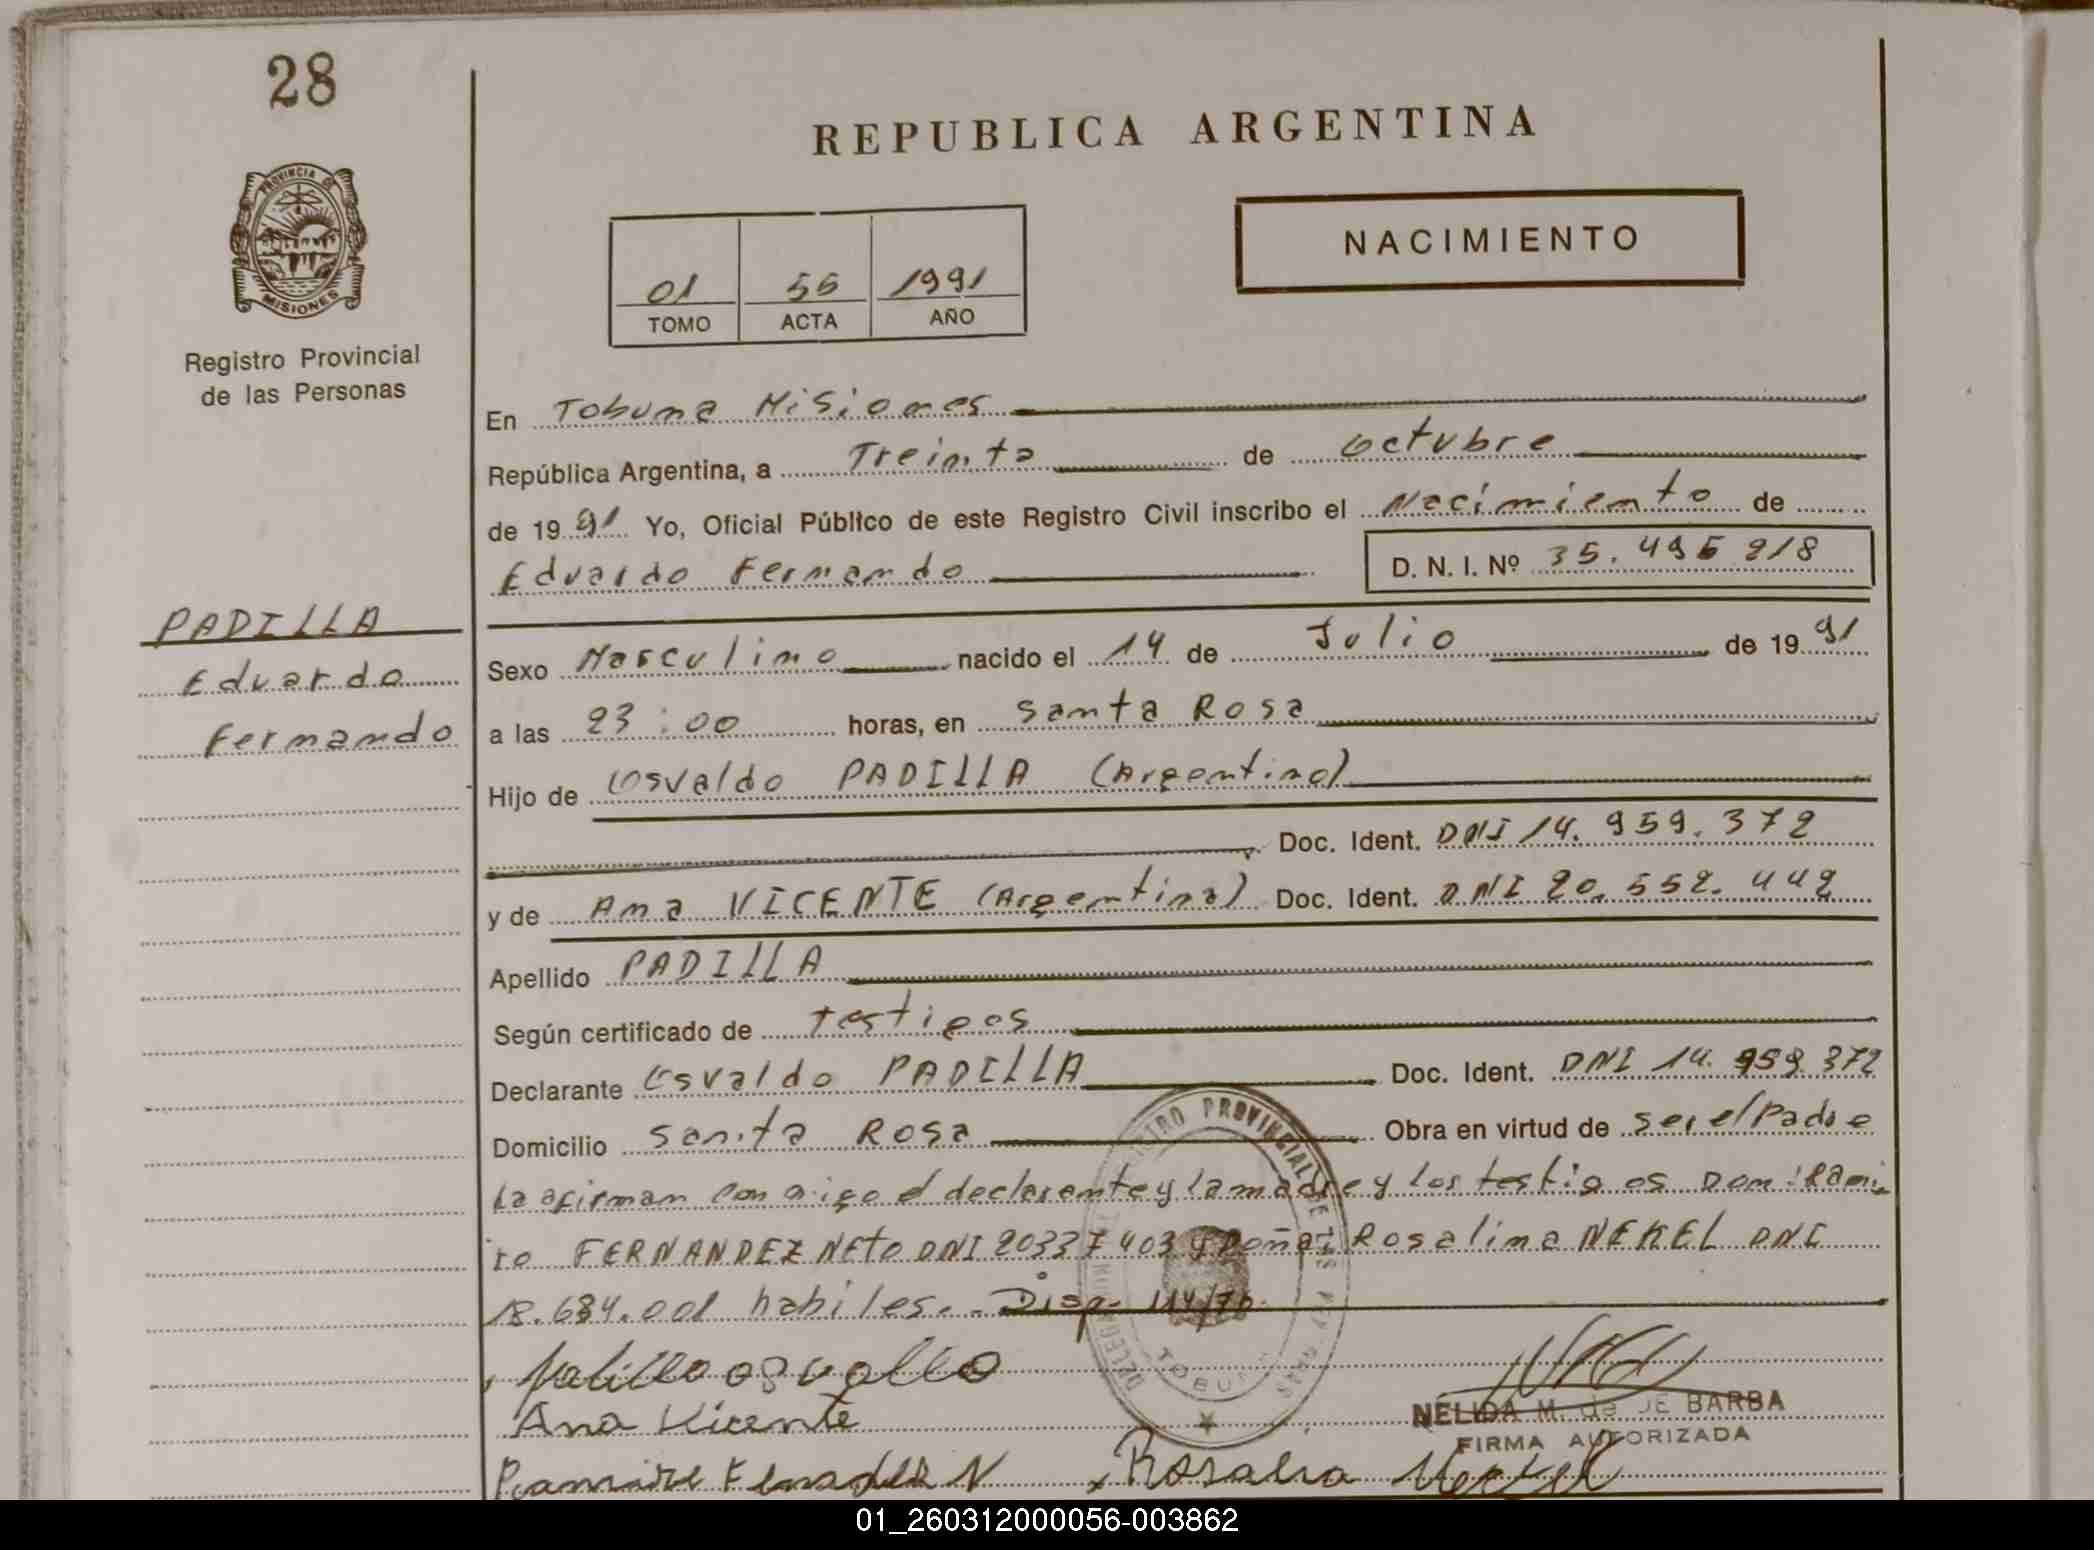 28
REPUBLICA ARGENTINA
PROVINCIA DE
MISIONES
NACIMIENTO
01 56 1991
TOMO ACTA AÑO
Registro Provincial
de las Personas
En Tobuna Misiones
República Argentina, a Treinta de Octubre
de 1991 Yo, Oficial Público de este Registro Civil inscribo el Nacimiento de
Eduardo Fernando D. N. I. Nº 35.496 218
PADILLA
Eduardo
Fernando
Sexo Masculino nacido el 14 de Julio de 1991
a las 23:00 horas, en Santa Rosa
Hijo de Osvaldo PADILLA (Argentino)
Doc. Ident. DNI 14.959.372
y de Ana VICENTE (Argentina) Doc. Ident. DNI 20.552.442
Apellido PADILLA
Según certificado de testigos
Declarante Osvaldo PADILLA Doc. Ident. DNI 14.959.372
Domicilio Santa Rosa Obra en virtud de ser el Padre
La afirman conmigo el declarante y la madre y los testigos Don: Rami
ro FERNANDEZ NETO DNI 20337403 y Doña: Rosalina NEKEL DNI
18.684.001 habiles. Disp. 114/76
Padilla Osvaldo
Ana Vicente
NELIDA M. de DE BARBA
FIRMA AUTORIZADA
TOBUNA
01_260312000056-003862